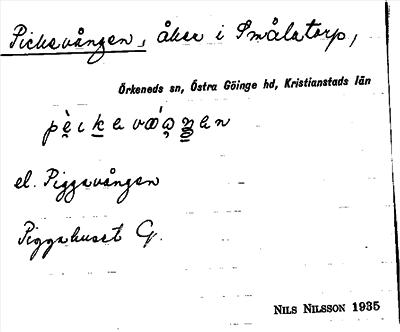 Pickavången, åker i Smålatorp,
Örkeneds sn, Östra Göinge hd, Kristianstads län
el. Piggavången
Piggahuset G.
NILS NILSSON 1935